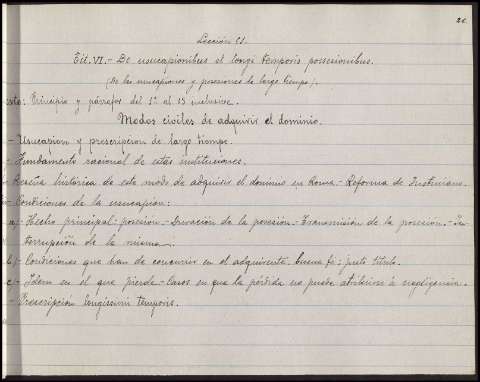 20.
Lección 21.
Tit. VI.- De usucapionibus et longi temporis possesionibus.
(De las usucapiones y posesiones de largo tiempo).
Principio y párrafos del 1º al 13 inclusive.
Modos civiles de adquirir el dominio.
- Usucapion y prescripcion de largo tiempo.
- Fundamento racional de estas instituciones.
- Reseña histórica de este modo de adquirir el dominio en Roma.- Reforma de Justiniano.
- Condiciones de la usucapion:
a)- Hecho principal: posesion.- Duración de la posesión.- Transmisión de la posesion.- In-
terrupción de la misma.
b)- Condiciones que han de concurrir en el adquirente. buena fé: justo titulo.
c)- Idem en el que pierde.- Casos en que la pérdida no puede atribuirse á negligencia.
- Prescripción longissimi temporis.